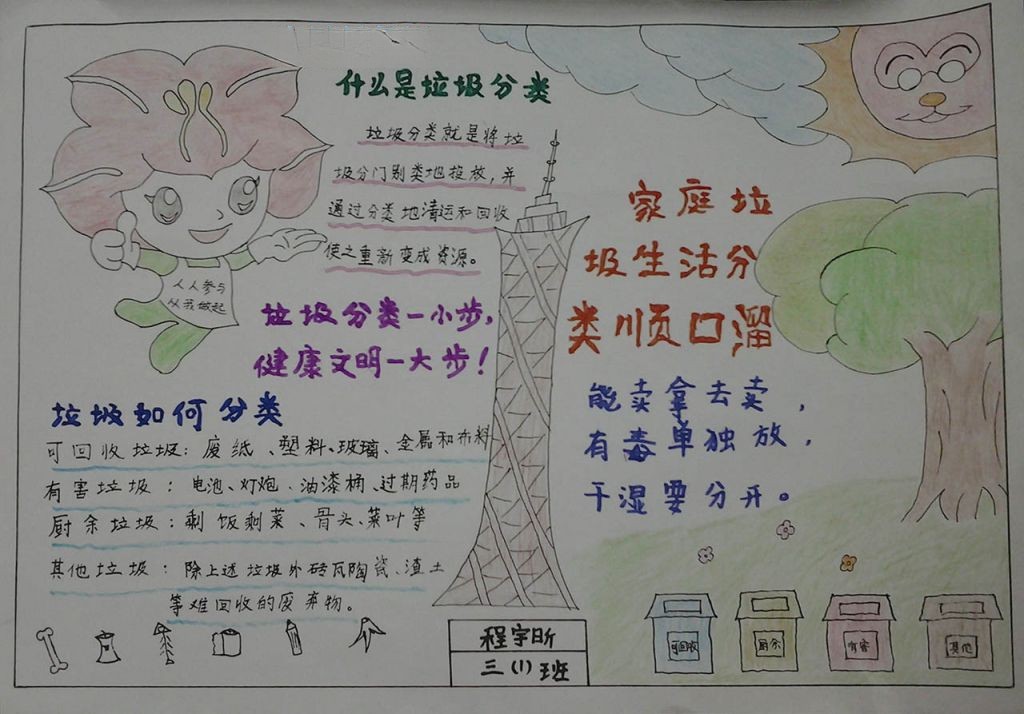 什么是垃圾分类
垃圾分类就是将垃
圾分门别类地投放，并
通过分类地清运和回收
使之重新变成资源。
人人参与
从我做起
垃圾分类一小步，
健康文明一大步！
垃圾如何分类
可回收垃圾：废纸、塑料、玻璃、金属和布料
有害垃圾：电池、灯炮、油漆桶、过期药品
厨余垃圾：剩饭剩菜、骨头、菜叶等
其他垃圾：除上述垃圾外砖瓦陶瓷、渣土
等难回收的废弃物。
家庭垃
圾生活分
类顺口溜
能卖拿去卖，
有毒单独放，
干湿要分开。
可回收
厨余
有害
其他
程宇昕
三（1）班